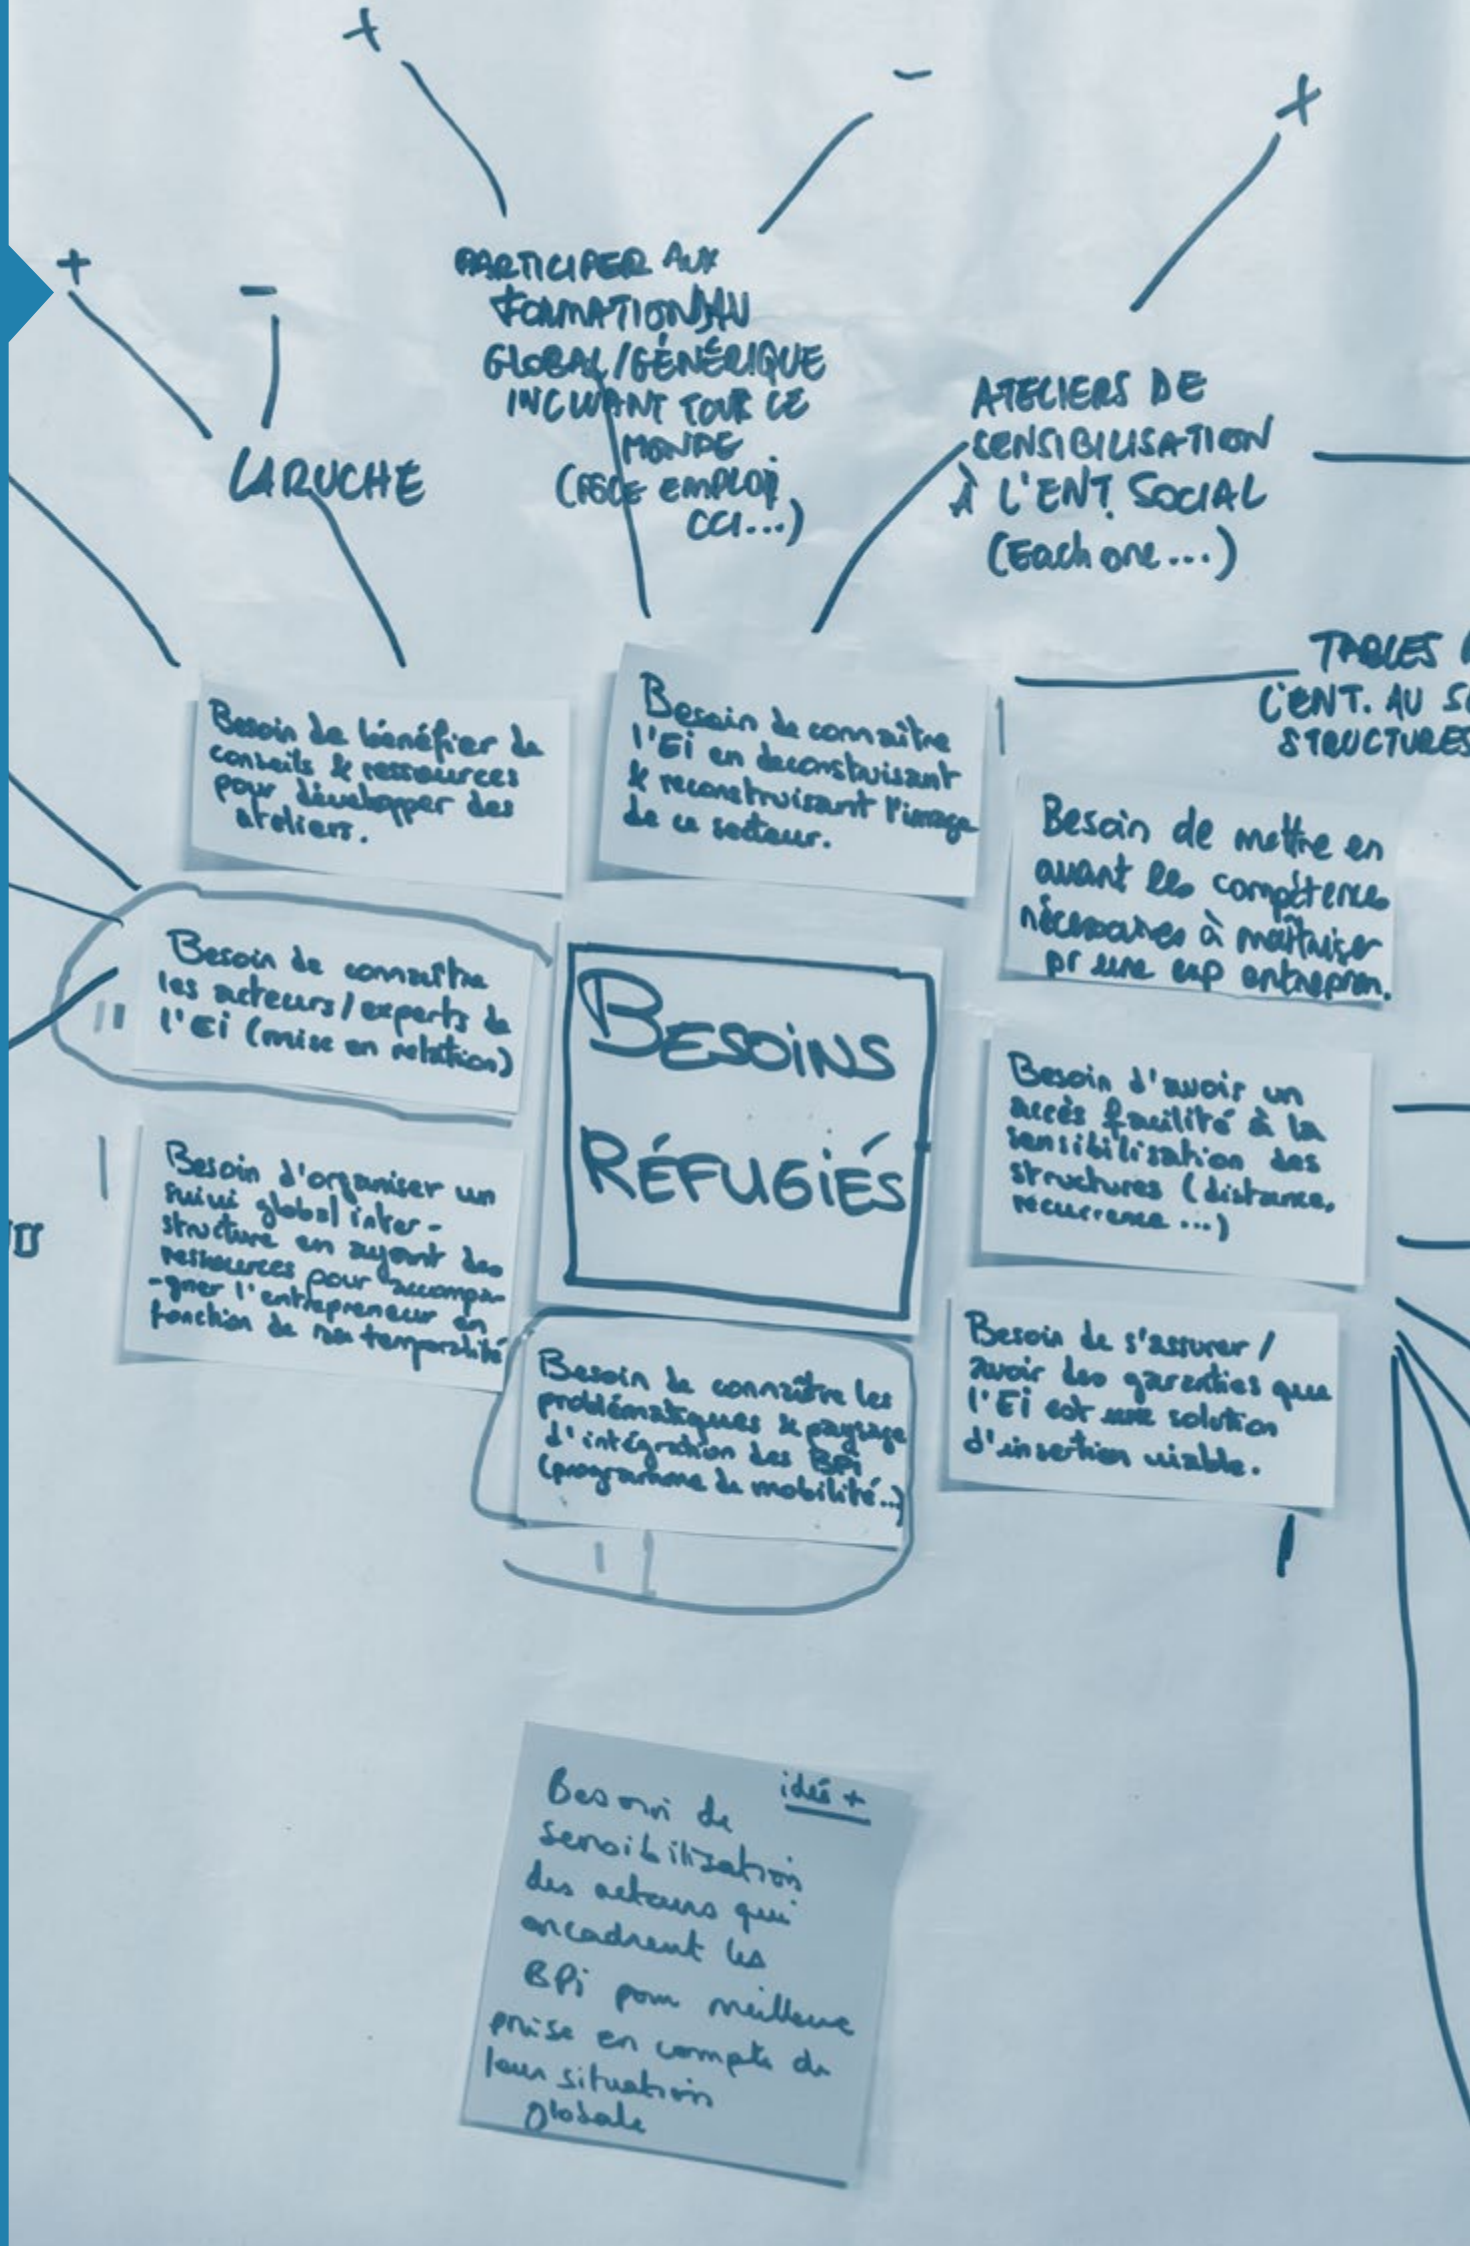 +
-
+
+
-
PARTICIPER AUX
FORMATION AU
GLOBAL/GÉNÉRIQUE
INCLUANT TOUT LE
MONDE
(PÔLE EMPLOI,
CCI...)
ATELIERS DE
SENSIBILISATION
À L'ENT. SOCIAL
(Each one...)
LA RUCHE
TABLES
L'ENT. AU
STRUCTURES
Besoin de bénéfier de
conseils & ressources
pour développer des
ateliers.
Besoin de connaître
l'Ei en deconstruisant
& reconstruisant l'image
de ce secteur.
Besoin de mettre en
avant les compétences
nécessaires à maîtriser
pr une exp entrepren.
Besoin de connaître
les acteurs/experts de
l'Ei (mise en relation)
BESOINS
RÉFUGIÉS
Besoin d'avoir un
accès facilité à la
sensibilisation des
structures (distance,
récurrence...)
Besoin d'organiser un
suivi global inter-
structure en ayant des
ressources pour accompa-
-gner l'entrepreneur en
fonction de sa temporalité
Besoin de connaître les
problématiques & paysage
d'intégration des BPi
(programme de mobilité...)
Besoin de s'assurer /
avoir des garanties que
l'Ei est une solution
d'insertion viable.
idée +
Besoin de
sensibilisation
des acteurs qui
encadrent les
BPi pour meilleure
prise en compte de
leur situation
globale